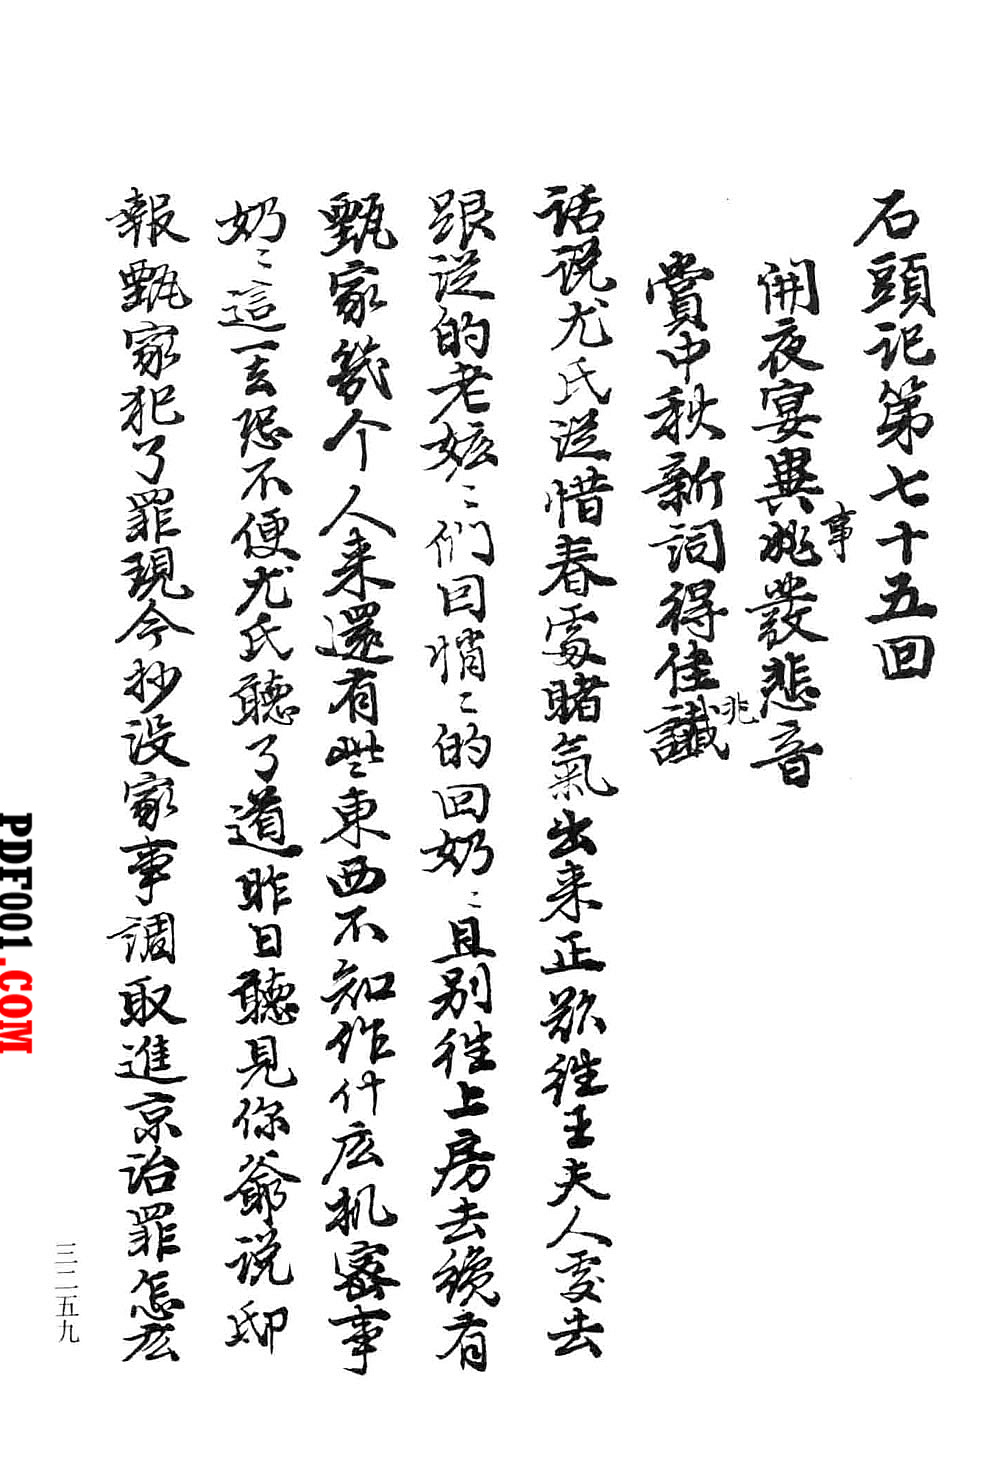 石頭记第七十五回
開夜宴異兆發悲音
事
賞中秋新詞得佳讖
兆
话说尤氏從惜春處賭氣出来正欲徃王夫人處去
跟従的老嬷〻们回悄〻的回奶〻且别徃上房去纔有
甄家幾个人来還有些東西不知作什庅机密事
奶〻這一去恐不便尤氏聽了道昨日聽見你爺说邸
報甄家犯了罪現今抄没家事調取進京治罪怎庅
三二五九
PDF001.COM